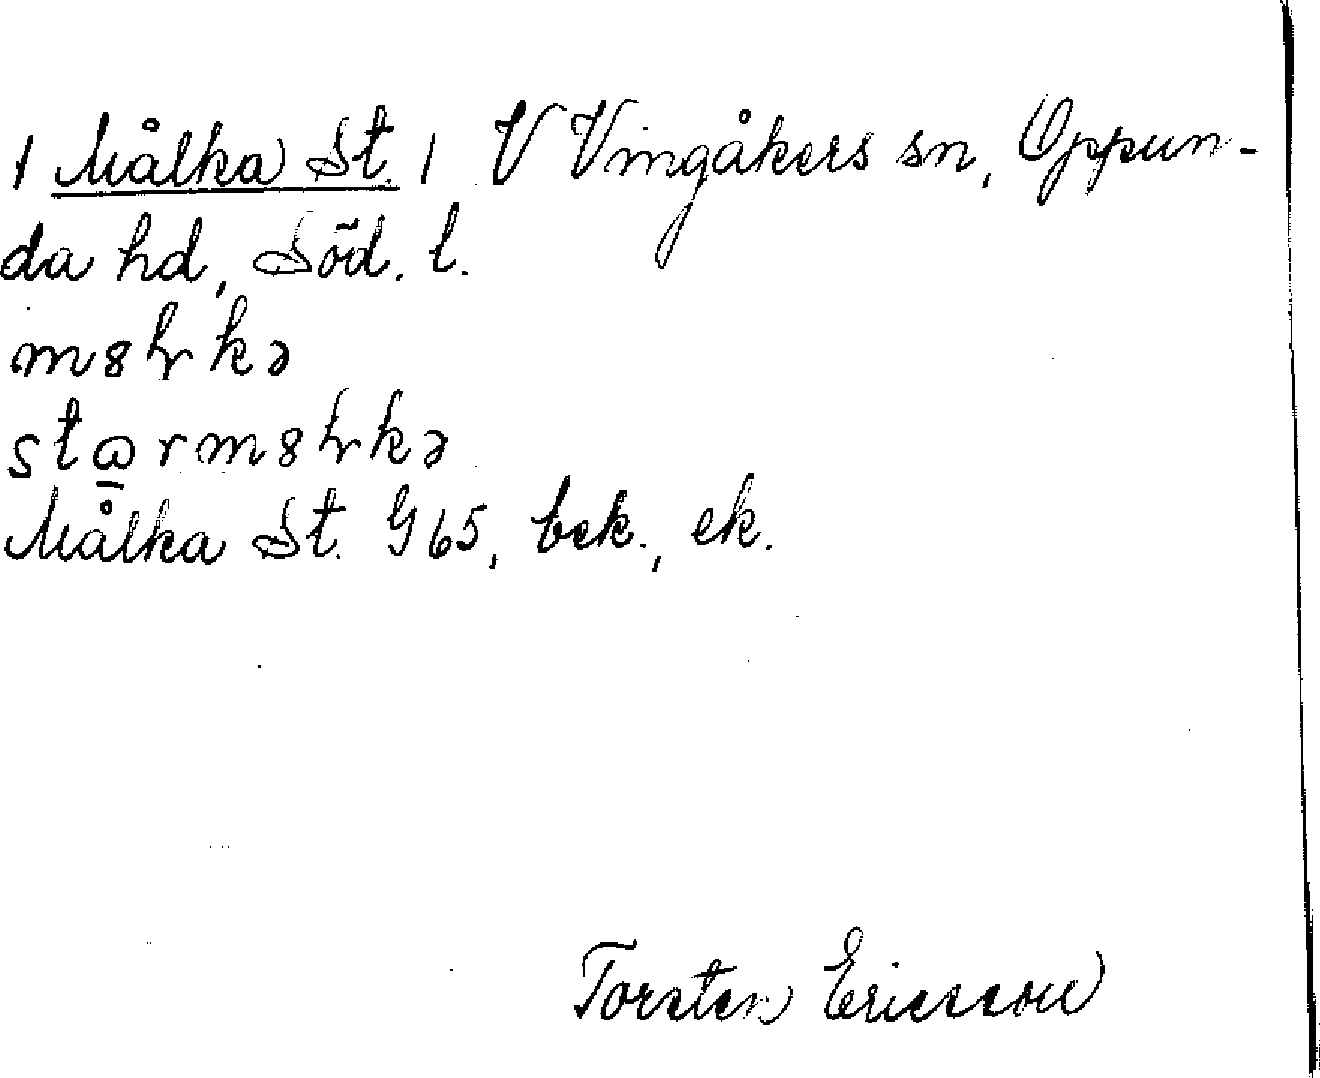 1 Målka St. 1 V Vingåkers sn, Oppun-
da hd, Söd. l.
m8ꝉkə
stα̲rm8ꝉkə
Målka St. G65, bek., ek.
Torsten Ericsson